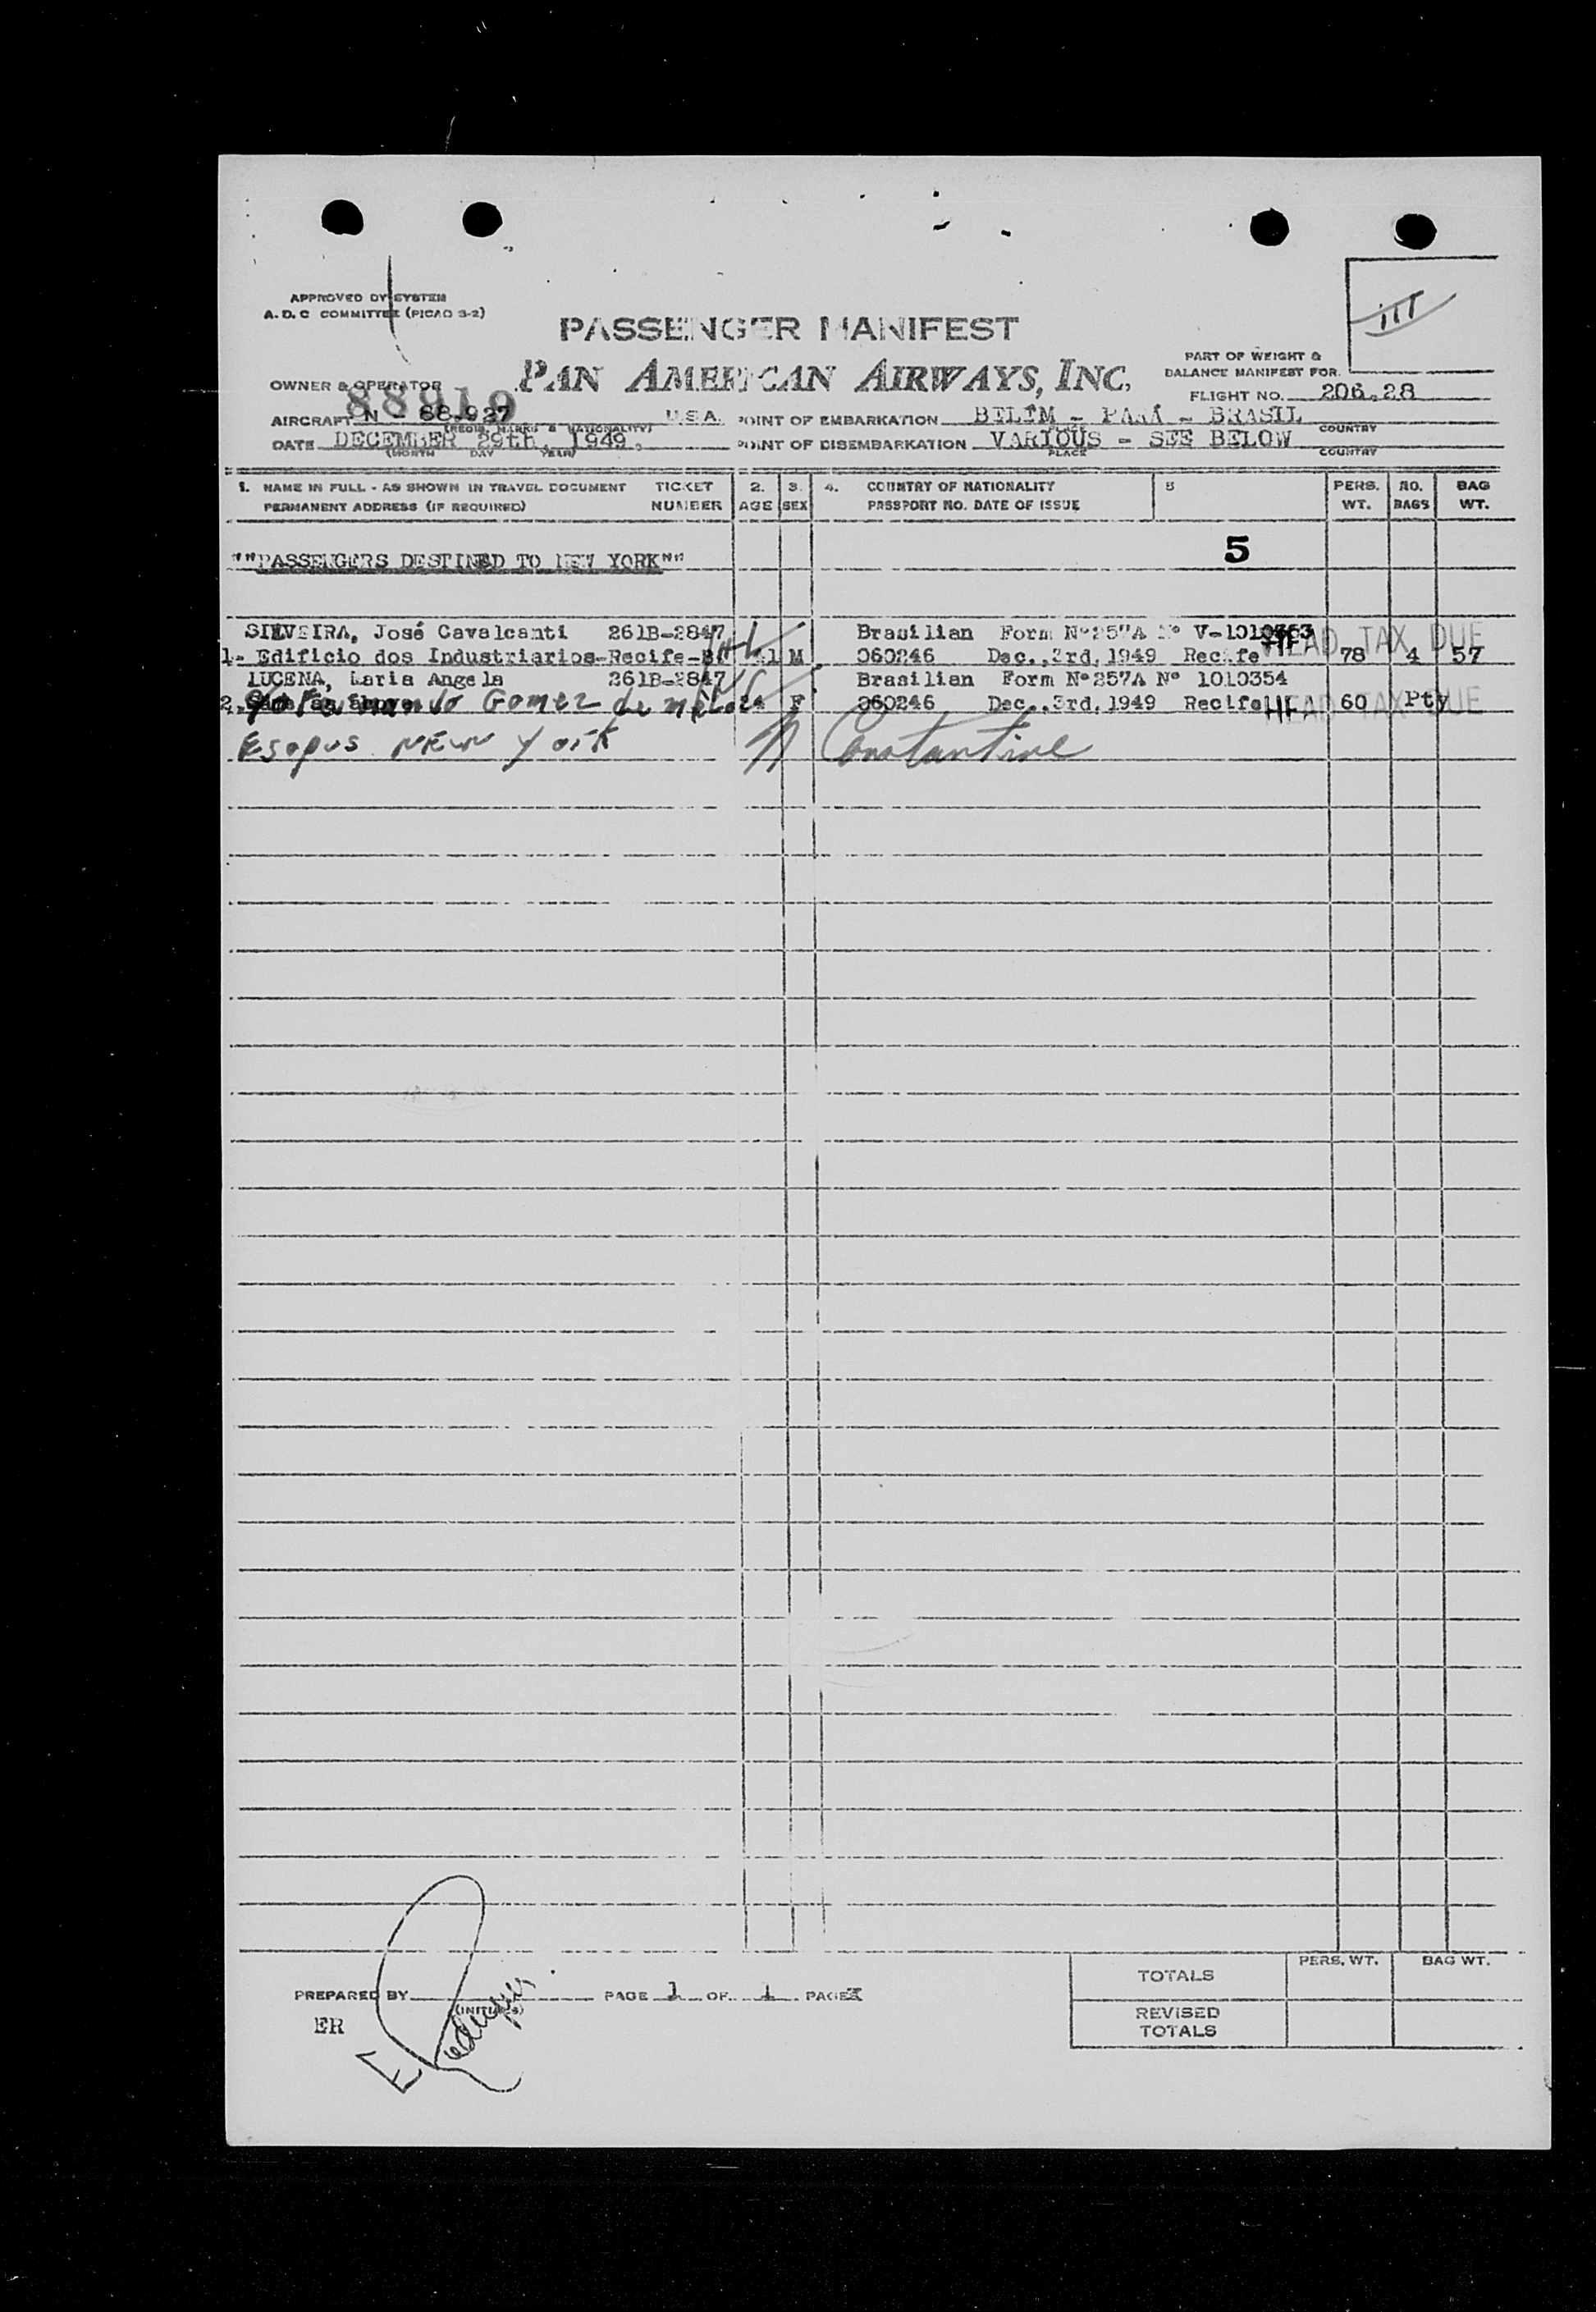 APPROVED BY SYSTEM
A. D. C COMMITTEE (PICAO S-2)
III
PASSENGER MANIFEST
PART OF WEIGHT &
BALANCE MANIFEST FOR
OWNER & OPERATOR PAN AMERICAN AIRWAYS, INC.
FLIGHT NO. 206.28
88910
AIRCRAFT N - 88-927 U.S.A. POINT OF EMBARKATION BELÉM - PARÁ - BRASIL
(REGIS. MARKS & NATIONALITY) COUNTRY
DATE DECEMBER 29th, 1949. POINT OF DISEMBARKATION VARIOUS - SEE BELOW
(MONTH DAY YEAR) PLACE COUNTRY
1. NAME IN FULL - AS SHOWN IN TRAVEL DOCUMENT TICKET 2. 3. 4. COUNTRY OF NATIONALITY 5 PERS. NO. BAG
PERMANENT ADDRESS (IF REQUIRED) NUMBER AGE SEX PASSPORT NO. DATE OF ISSUE WT. BAGS WT.
""PASSENGERS DESTINED TO NEW YORK"" 5
SILVEIRA, José Cavalcanti 261B-2847 Brasilian Form Nº257A Nº V-1010353 HEAD TAX DUE
1- Edificio dos Industriarios-Recife- M 060246 Dec.,3rd,1949 Recife 78 4 57
LUCENA, Maria Angela 261B-2847 Brasilian Form Nº257A Nº 1010354
2. Same as above 24 F 060246 Dec.,3rd,1949 Recife HEAD TAX DUE 60 Pty
Gomez de
Esopus NEW York Constantine
PREPARED BY (INITIALS) PAGE 1 OF 1 PAGES
ER
TOTALS PERS. WT. BAG WT.
REVISED
TOTALS